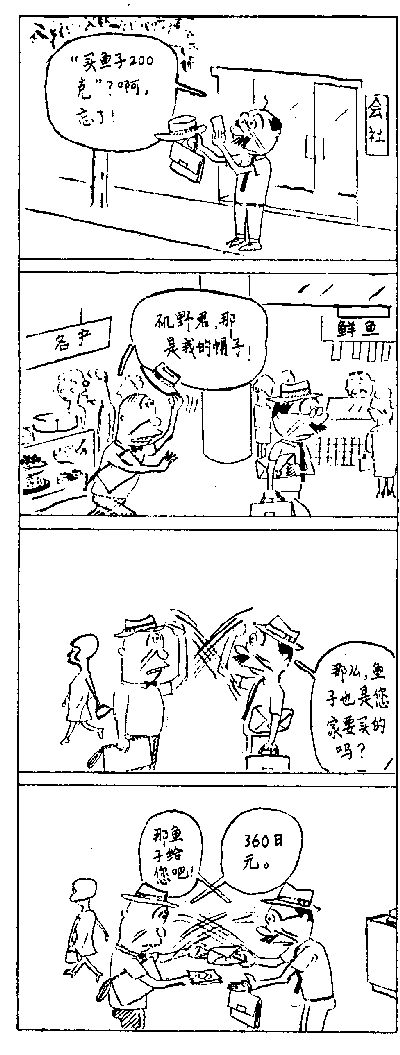 “买鱼子200
克”?啊,
忘了!
会
社
矶野君,那
是我的帽子!
鲜鱼
那么,鱼
子也是您
家要买的
吗?
那鱼
子给
您吧!
360日
元。